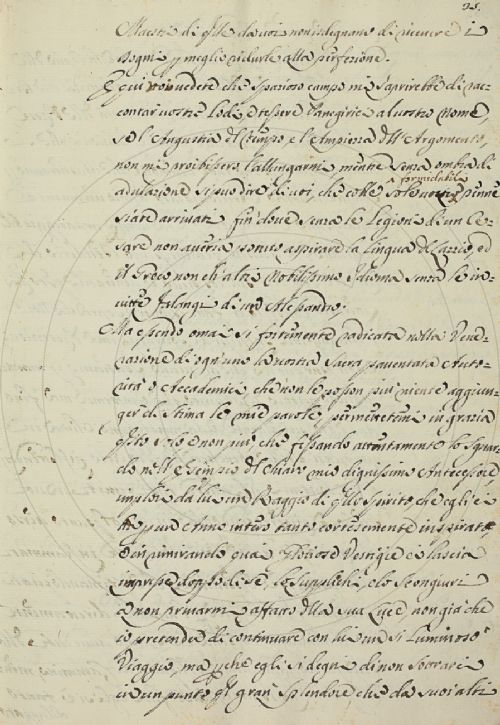 95.
Maestri di qlle da voi non isdegnano di ricevere i
Sogni p meglio ridurle alla perfezione.
E qui voi vedete che spazioso campo mi s'aprirebbe di rac-
contar vostre lodi, e tessere Panegirici al vostro Nome,
se l'Angustia del tempo, e l'Ampiezza dell'Argomento,
non mi proibissero l'allungarmi, mentre senza ombra di
formidabile
adulazione si può dire di voi, che colle sole vostre penne
siate arrivati fin dove senza le Legioni di un Ce-
sare non averia potuto aspirare la Lingua del Lazio, ed
il Greco, non ch'altri Nobilissimo Idioma senza le in-
vitte falangi di un Alessandro.
Ma essendo omai sì fortemente radicata nella Vene-
razione di ogn'uno la vostra Sacra paventata Auto-
rità o Accademici che non le posson più niente aggiun-
ger di stima le mie parole, permettetemi in grazia
qsto solo e non più, che fissando attentamente lo Sguar-
do nell'Esempio del chiaro mio dignissimo Antecessore
implori da lui un Raggio di qllo Spirito, che egli è
pure Anno intero tanto cortesemente inspirato,
e in rimirando qua Gloriose Vestigie ei lascia
impresse doppo di sè, lo Supplichi, e lo Scongiuri
a non privarmi affatto della sua Luce, non già che
io pretenda di continuare con lui un sì Luminoso
Viaggio, ma pche egli si degni di non sottrarci
in un punto ql gran Splendore che da' suoi alti